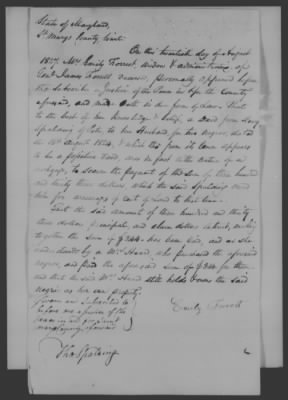 State of Maryland,
St Marys County Court
On this twentieth day of August
18 Mrs Emily Forrest, widow & administratrix of
James Forrest deceased, personally appeared before
the Subscriber a Justice of the Peace in & for the County
aforesaid, and made Oath in due form of law. That
to the best of her knowledge & belief, a Deed from
Spalding of to her husband for two negroes, dated
the August 1814, & which tho from its face appears
to be a Deed, was in fact in the nature of a
mortgage, to secure the payment of the sum of three hundred
and thirty three dollars which the said Spalding
him
That the said amount of three hundred and thirty
three dollars principal, and eleven dollars interest, making
together the sum of $344. has been paid, and as she
understands by a Mr. who purchased the aforesaid
negroes, and paid the aforesaid sum of $344 for them
and that the said Mr. still holds & owns the said
negroes as his own property
Sworn and Subscribed to
before me a Justice of the
Peace in and for Saint
Marys County aforesaid
Emily Forrest
Tho Spalding